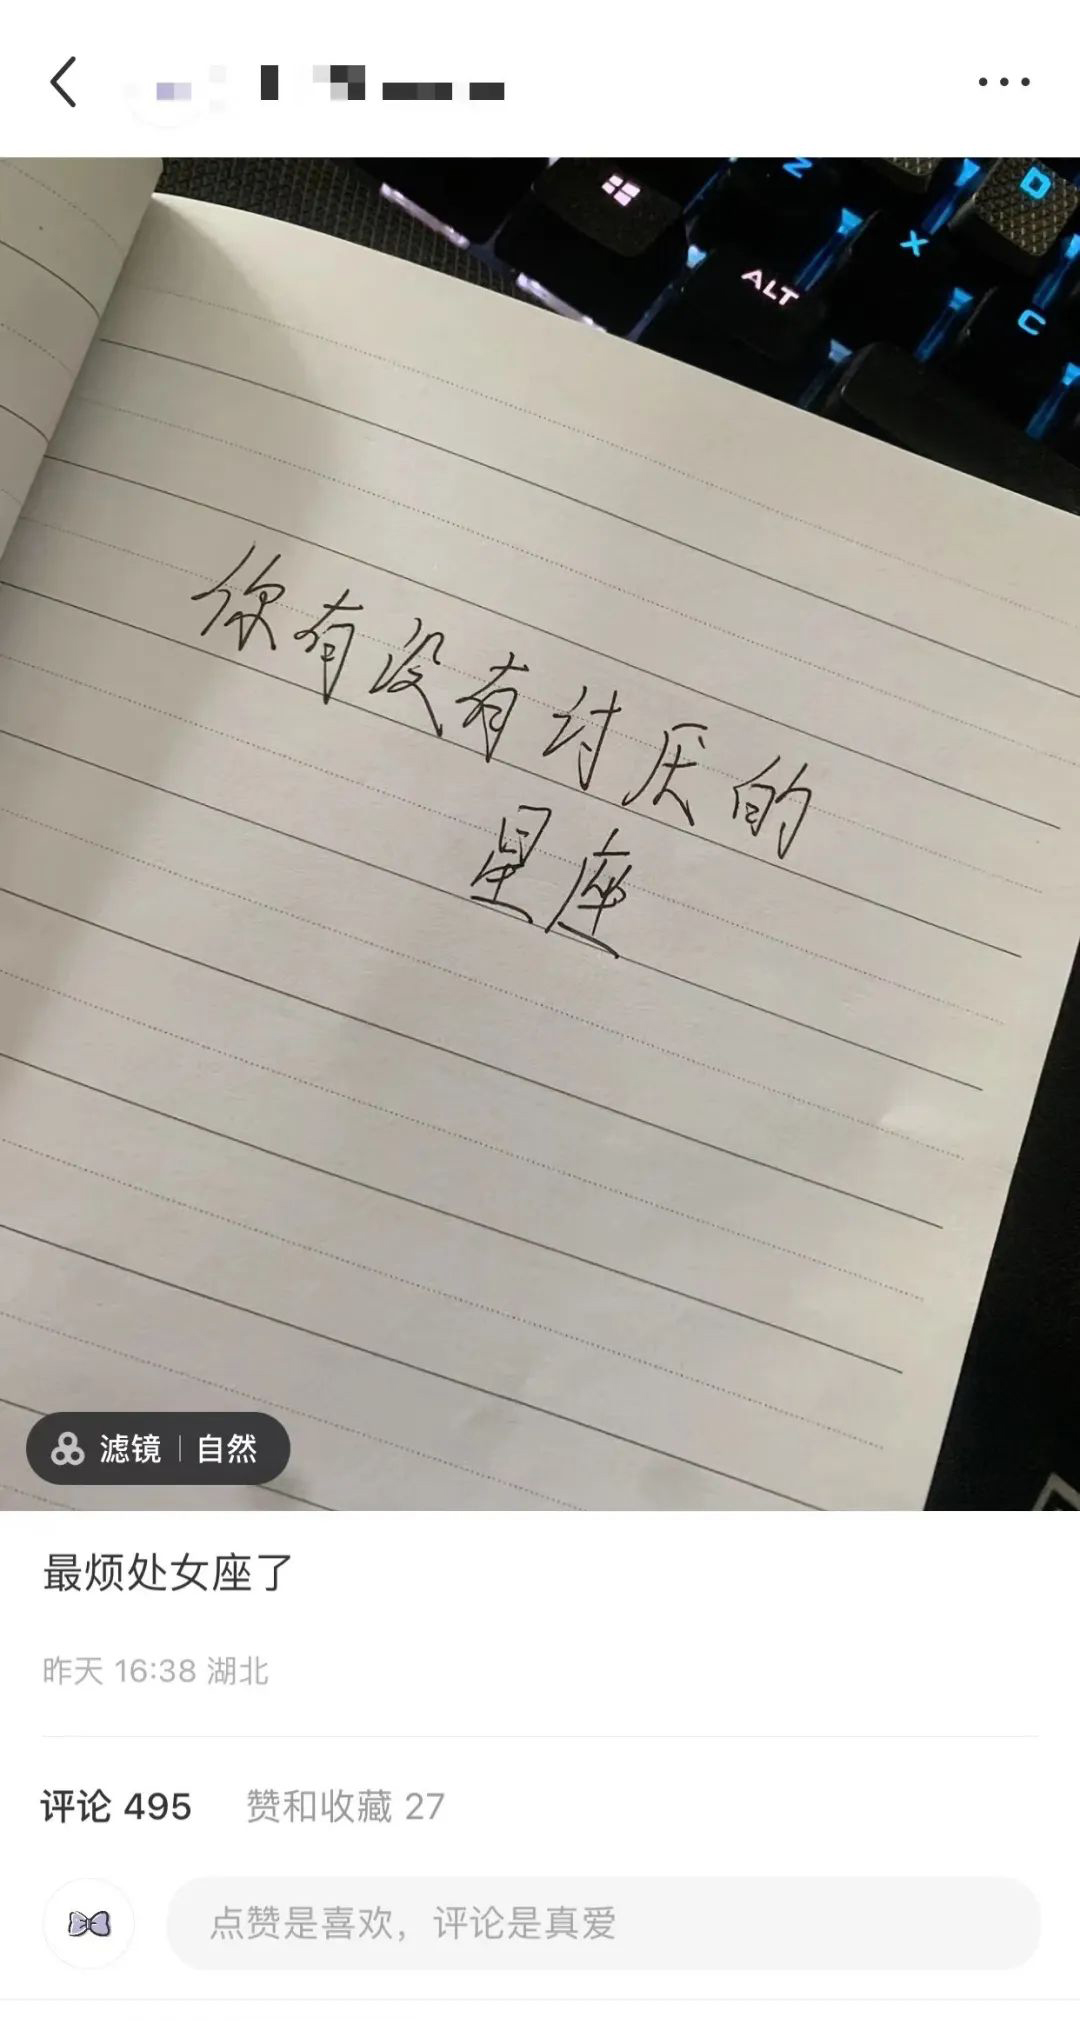 Z
D
X
ALT
C
你有没有讨厌的
星座
滤镜 | 自然
最烦处女座了
昨天 16:38 湖北
评论 495 赞和收藏 27
点赞是喜欢，评论是真爱